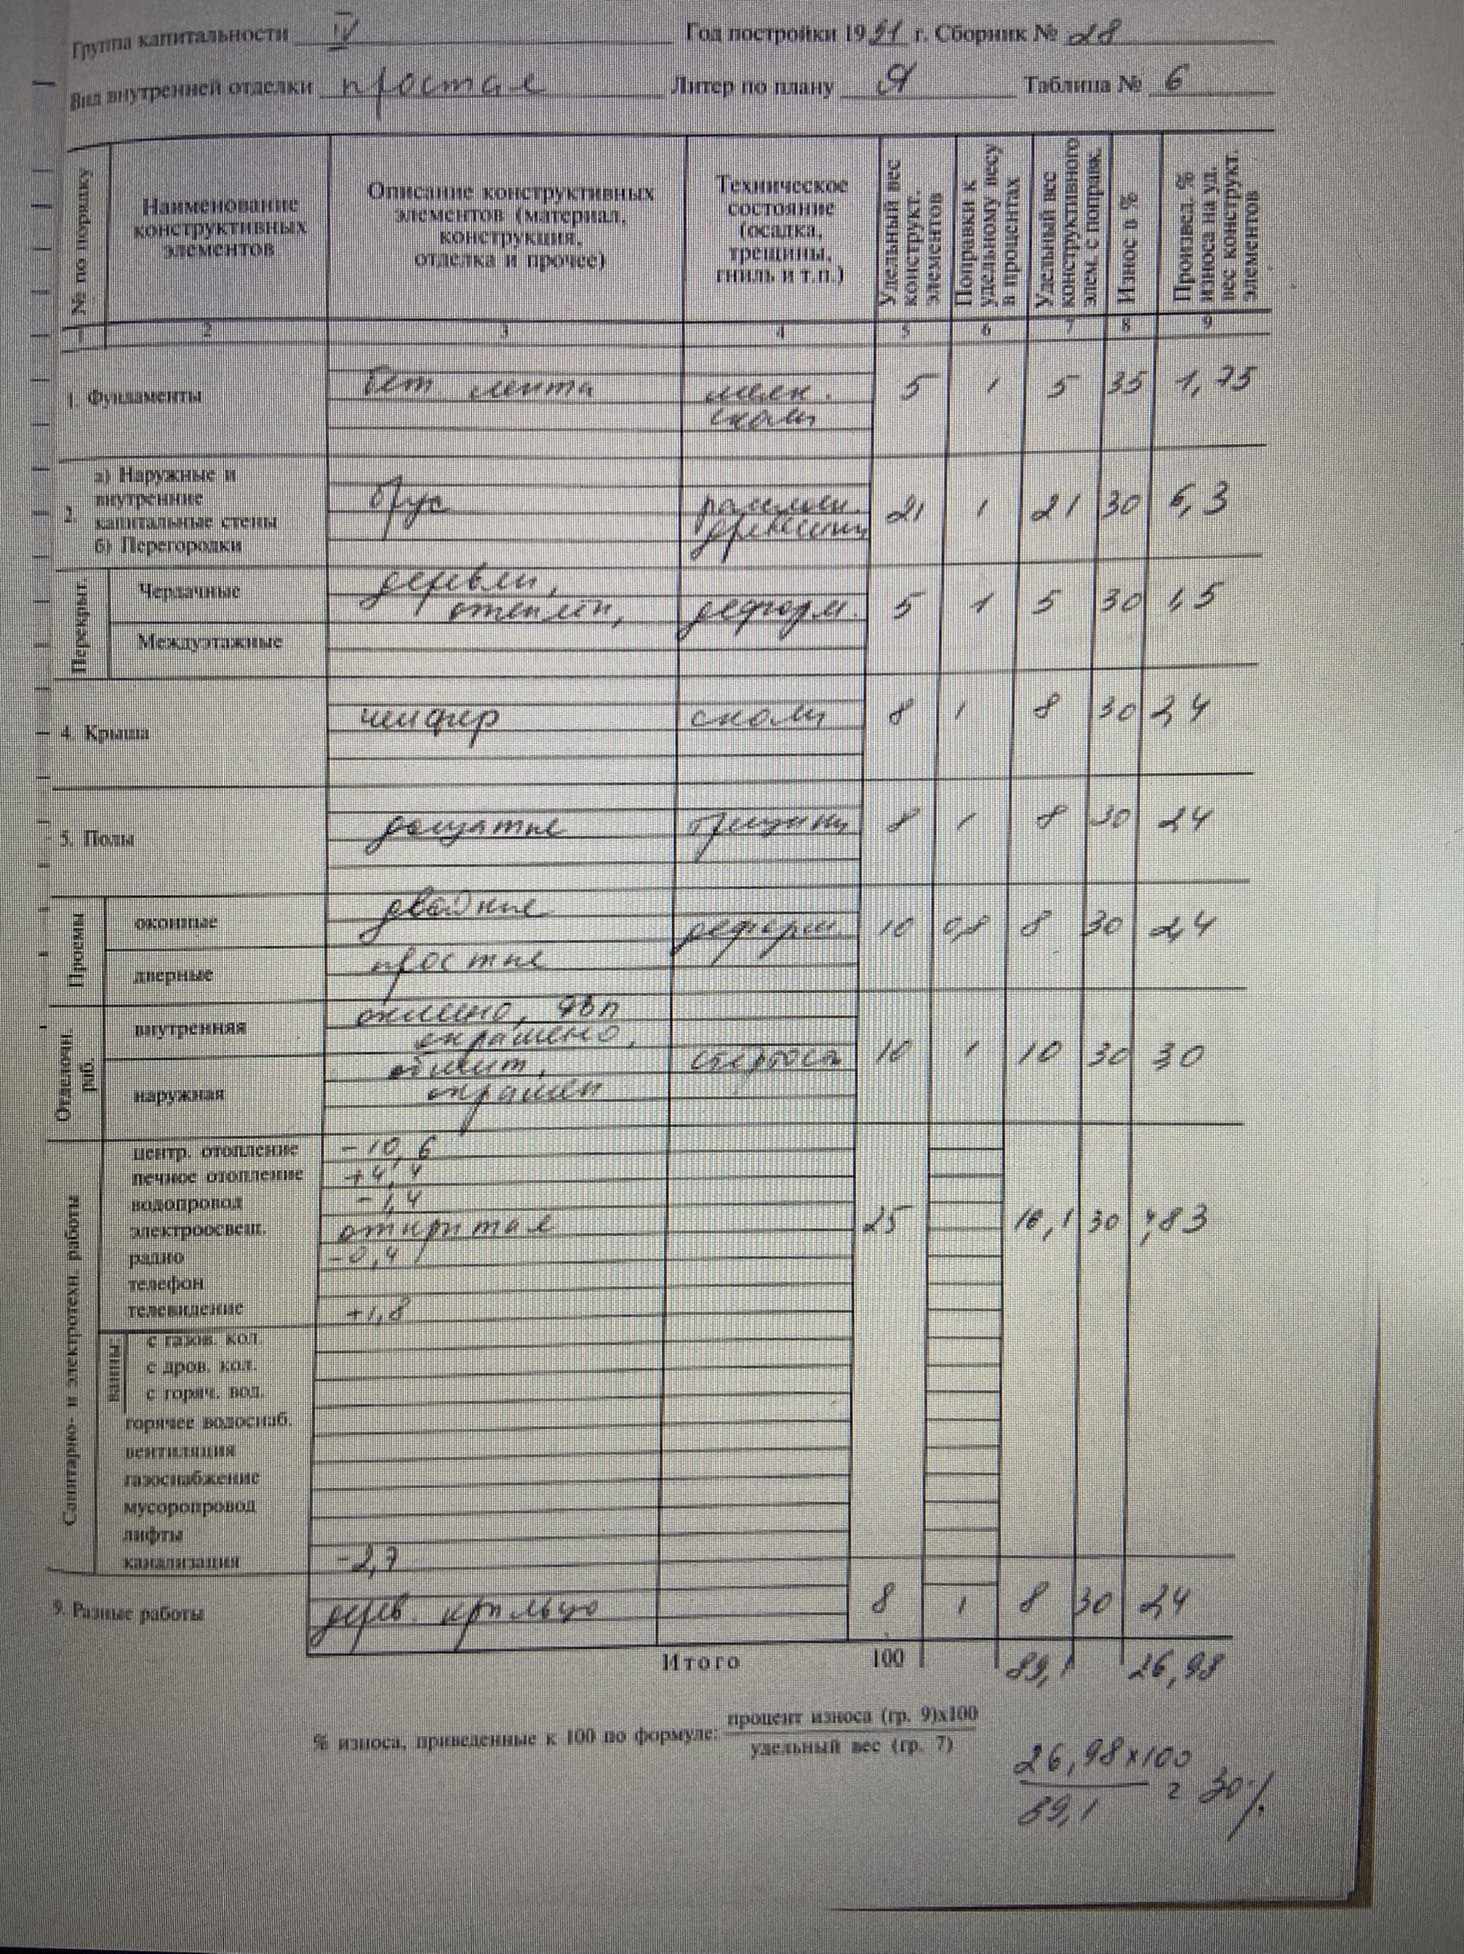 Группа капитальности IV Год постройки 1991 г. Сборник № 28
Вид внутренней отделки простая Литер по плану Я Таблица № 6
№ по порядку
Наименование конструктивных элементов
Описание конструктивных элементов (материал, конструкция, отделка и прочее)
Техническое состояние (осадка, трещины, гниль и т.п.)
Удельный вес конструкт. элементов
Поправки к удельному весу в процентах
Удельный вес конструктивного элем. с поправк.
Износ в %
Произвед. % износа на уд. вес конструкт. элементов
1 2 3 4 5 6 7 8 9
1. Фундаменты бет. лента мелк. сколы 5 1 5 35 1,75
2. а) Наружные и внутренние капитальные стены
б) Перегородки
брус рассохш. трещины 21 1 21 30 6,3
Перекрыт.
Чердачные деревян, отеплен, деформ. 5 1 5 30 1,5
Междуэтажные
4. Крыша шифер сколы 8 1 8 30 2,4
5. Полы дощатые трещины 8 1 8 30 2,4
Проемы
оконные двойные деформ. 10 0,8 8 30 2,4
дверные простые
Отделочн. раб.
внутренняя оклеено, двп окрашено,
наружная обшит, окрашен 10 1 10 30 30
Санитарно- и электротехн. работы
центр. отопление -10,6
печное отопление +4,4
водопровод -1,4
электроосвещ. открытая 25 16,1 30 4,83
радио -0,4
телефон
телевидение +1,8
ванны:
с газов. кол.
с дров. кол.
с горяч. вод.
горячее водоснаб.
вентиляция
газоснабжение
мусоропровод
лифты
канализация -2,7
9. Разные работы дерев. крыльцо 8 1 8 30 2,4
Итого 100 89,1 26,98
% износа, приведенные к 100 по формуле: процент износа (гр. 9)х100
удельный вес (гр. 7)
26,98х100
89,1
= 30%